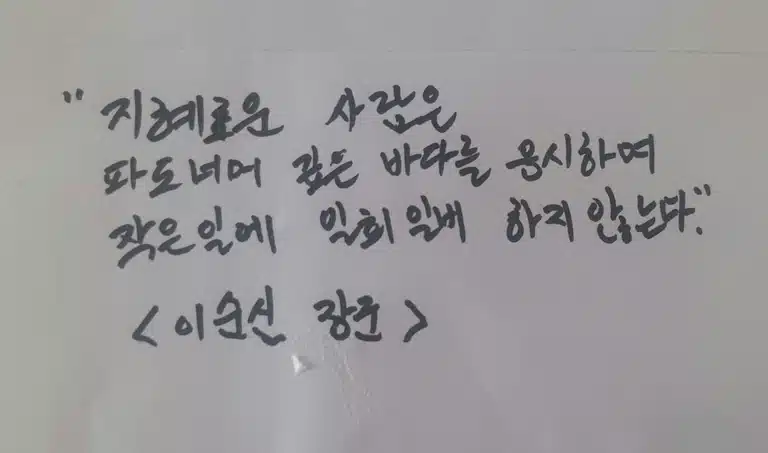 "지혜로운 사람은
파도너머 깊은 바다를 응시하며
작은일에 일희일비 하지 않는다."
<이순신 장군>